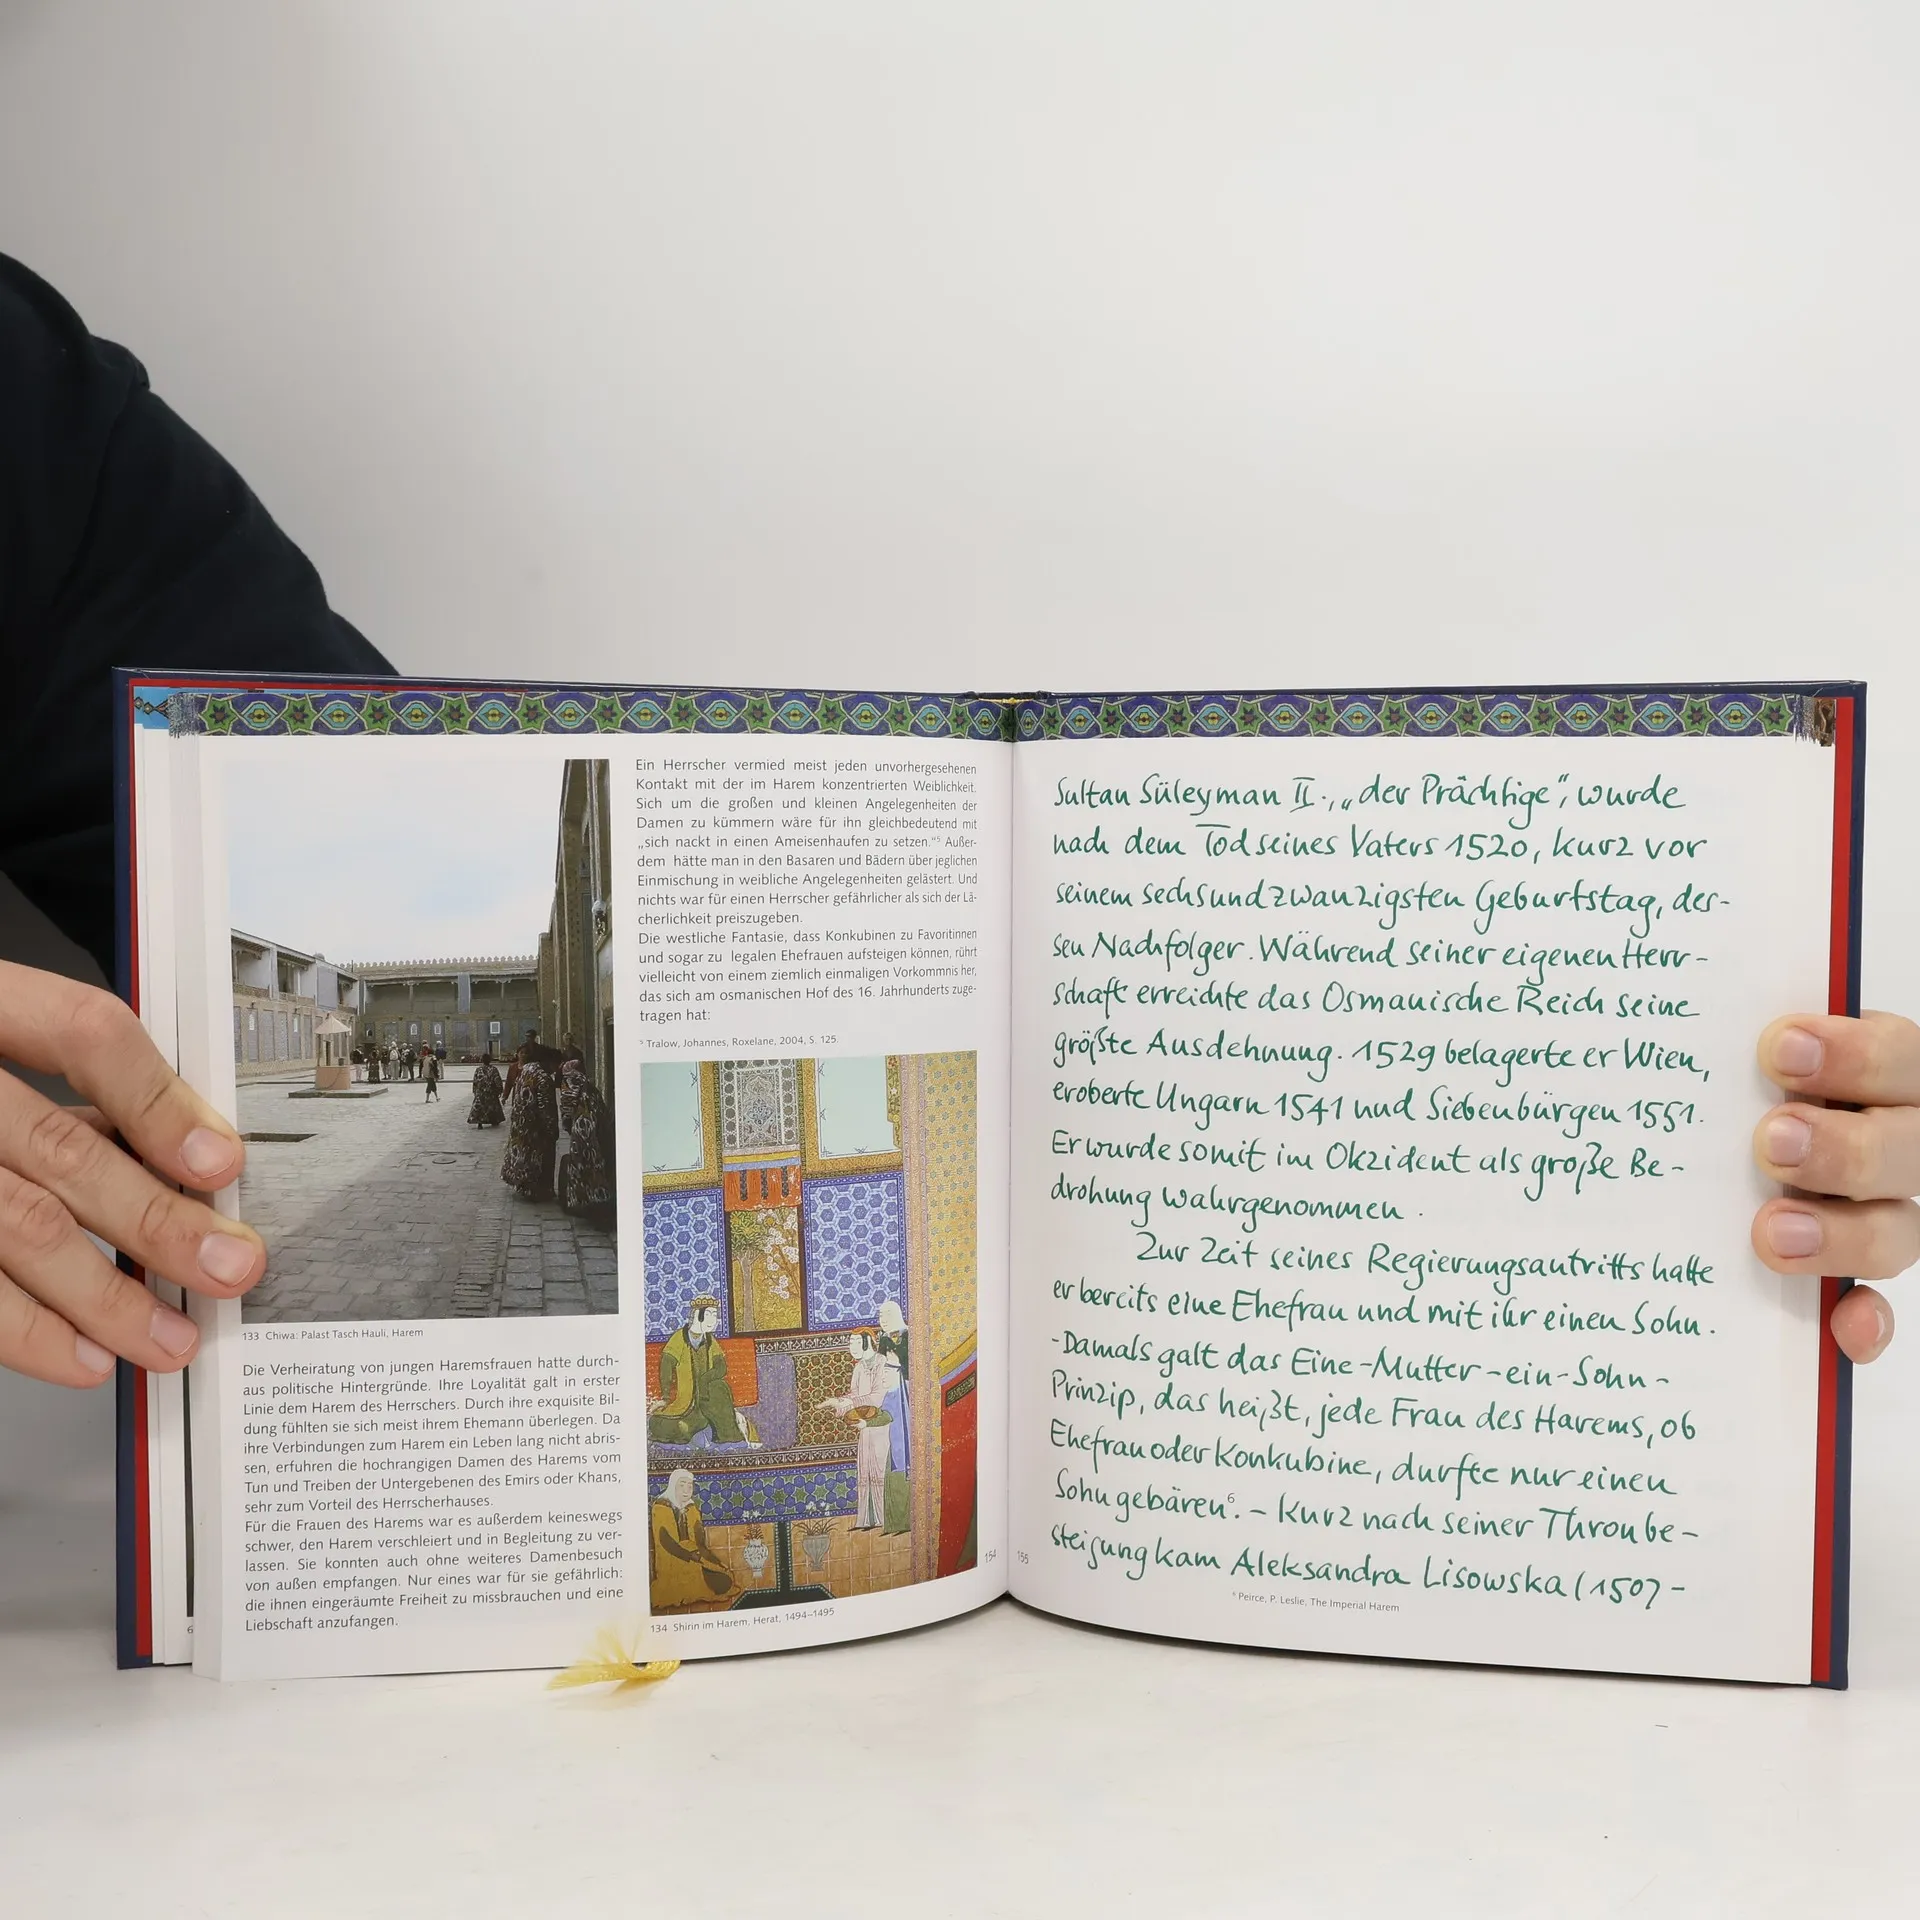 133 Chiwa: Palast Tasch Hauli, Harem
Die Verheiratung von jungen Haremsfrauen hatte durch-
aus politische Hintergründe. Ihre Loyalität galt in erster
Linie dem Harem des Herrschers. Durch ihre exquisite Bil-
dung fühlten sie sich meist ihrem Ehemann überlegen. Da
ihre Verbindungen zum Harem ein Leben lang nicht abris-
sen, erfuhren die hochrangigen Damen des Harems vom
Tun und Treiben der Untergebenen des Emirs oder Khans,
sehr zum Vorteil des Herrscherhauses.
Für die Frauen des Harems war es außerdem keineswegs
schwer, den Harem verschleiert und in Begleitung zu ver-
lassen. Sie konnten auch ohne weiteres Damenbesuch
von außen empfangen. Nur eines war für sie gefährlich:
die ihnen eingeräumte Freiheit zu missbrauchen und eine
Liebschaft anzufangen.
Ein Herrscher vermied meist jeden unvorhergesehenen
Kontakt mit der im Harem konzentrierten Weiblichkeit.
Sich um die großen und kleinen Angelegenheiten der
Damen zu kümmern wäre für ihn gleichbedeutend mit
„sich nackt in einen Ameisenhaufen zu setzen.“⁵ Außer-
dem hätte man in den Basaren und Bädern über jeglichen
Einmischung in weibliche Angelegenheiten gelästert. Und
nichts war für einen Herrscher gefährlicher als sich der Lä-
cherlichkeit preiszugeben.
Die westliche Fantasie, dass Konkubinen zu Favoritinnen
und sogar zu legalen Ehefrauen aufsteigen können, rührt
vielleicht von einem ziemlich einmaligen Vorkommnis her,
das sich am osmanischen Hof des 16. Jahrhunderts zuge-
tragen hat:
⁵ Tralow, Johannes, Roxelane, 2004, S. 125.
134 Shirin im Harem, Herat, 1494–1495
154
Sultan Süleyman II., „der Prächtige“, wurde
nach dem Tod seines Vaters 1520, kurz vor
seinem sechsundzwanzigsten Geburtstag, des-
sen Nachfolger. Während seiner eigenen Herr-
schaft erreichte das Osmanische Reich seine
größte Ausdehnung. 1529 belagerte er Wien,
eroberte Ungarn 1541 und Siebenbürgen 1551.
Er wurde somit im Okzident als große Be-
drohung wahrgenommen.
Zur Zeit seines Regierungsantritts hatte
er bereits eine Ehefrau und mit ihr einen Sohn.
-Damals galt das Eine-Mutter-ein-Sohn-
Prinzip, das heißt, jede Frau des Harems, ob
Ehefrau oder Konkubine, durfte nur einen
Sohn gebären⁶. – Kurz nach seiner Thronbe-
steigung kam Aleksandra Lisowska (1507-
⁶ Peirce, P. Leslie, The Imperial Harem
155